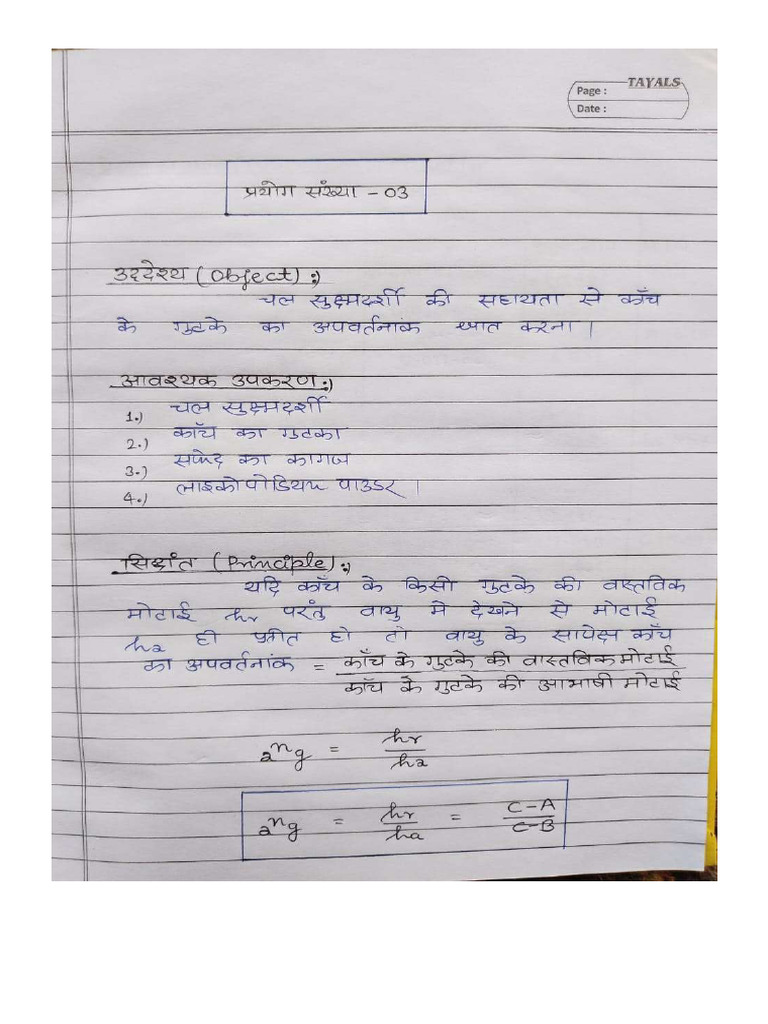 TAYALS
Page :
Date :
प्रयोग संख्या - 03
उद्देश्य (Object) :)
चल सुक्ष्मदर्शी की सहायता से काँच
के गुटके का अपवर्तनांक ज्ञात करना ।
आवश्यक उपकरण :)
1.) चल सुक्ष्मदर्शी
2.) काँच का गुटका
3.) सफेद का कागज
4.) लाइकोपोडियम पाउडर ।
सिद्धांत (Principle) :)
यदि काँच के किसी गुटके की वास्तविक
मोटाई hr परंतु वायु मे देखने से मोटाई
ha ही प्रतीत हो तो वायु के सापेक्ष काँच
का अपवर्तनांक = काँच के गुटके की वास्तविक मोटाई
काँच के गुटके की आभाषी मोटाई
ang = hr/ha
ang = hr/ha = C-A/C-B